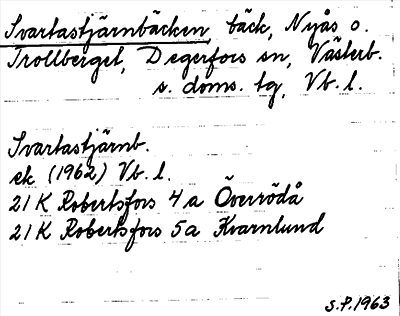 Svartastjärnbäcken, bäck, Nyås o.
Trollberget, Degerfors sn, Västerb.
s. doms. tg, Vb. l.
Svartastjärnb.
ek (1962) Vb. l.
21 K Robertsfors 4 a Överrödå
21 K Robertsfors 5 a Kvarnlund
S.P. 1963